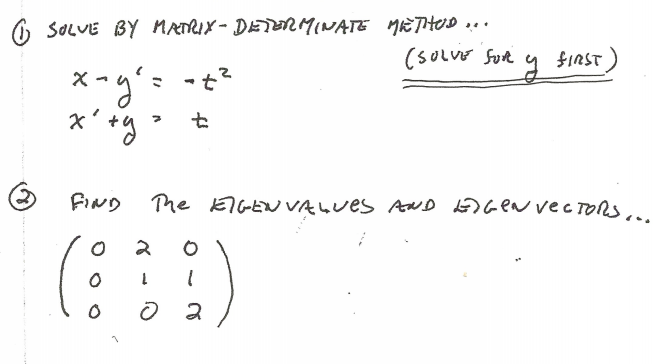 ① SOLVE BY MATRIX-DETERMINATE METHOD...
(SOLVE FOR y FIRST)
x - y' = -t²
x' + y = t
② FIND The EIGENVALUES AND EIGENVECTORS...
0 2 0
0 1 1
0 0 2